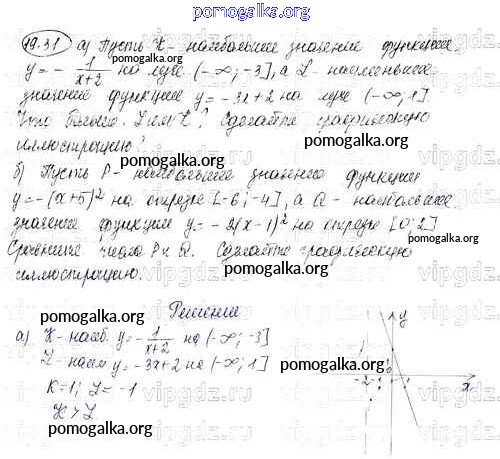 pomogalka.org
19.31 а) Пусть K - наибольшее значение функции
y = - 1/(x+2) на луче (-∞; -3], а L - наименьшее
значение функции y = -3x+2 на луче (-∞; 1].
Что больше: L или K? Сделайте графическую
иллюстрацию?
pomogalka.org pomogalka.org
б) Пусть P - наибольшее значение функции
y = -(x+5)² на отрезке [-6; -4], а Q - наибольшее
значение функции y = -2(x-1)² на отрезке [0; 2]
Сравните числа P и Q. Сделайте графическую
иллюстрацию.
pomogalka.org
Решение
pomogalka.org
а) K - наиб. y = - 1/(x+2) на (-∞; -3]
L - наим y = -3x+2 на (-∞; 1]
K=1; L = -1
K > L
pomogalka.org
pomogalka.org
y
-2 -1 1 x
pomogalka.org
vipgdz.ru